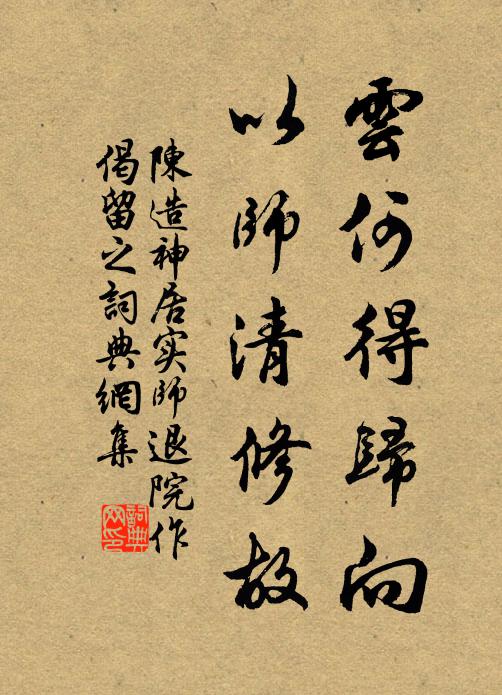 雲何得歸向
以師清修故
陳造神居实師退院作
偈留之詞典網集
詞典网印